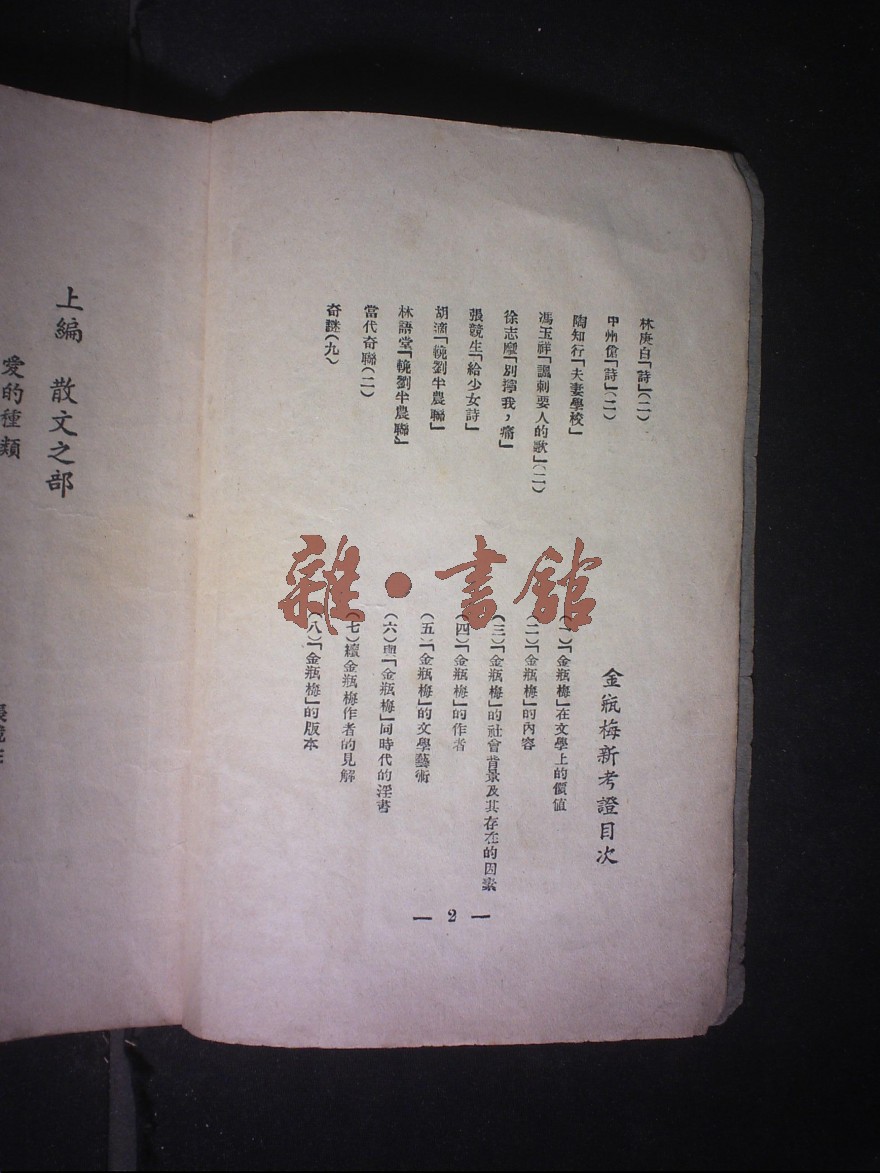 林庚白「詩」(二)
中州傖「詩」(二)
陶知行「夫妻學校」
馮玉祥「諷刺要人的歌」(二)
徐志魔「別擰我，痛」
張競生「給少女詩」
胡適「輓劉半農聯」
林語堂「輓劉半農聯」
當代奇聯(二)
奇謎(九)
金瓶梅新考證目次
(一)「金瓶梅」在文學上的價值
(二)「金瓶梅」的內容
(三)「金瓶梅」的社會背景及其存在的因素
(四)「金瓶梅」的作者
(五)「金瓶梅」的文學藝術
(六)與「金瓶梅」同時代的淫書
(七)續金瓶梅作者的見解
(八)「金瓶梅」的版本
— 2 —
上編 散文之部
愛的種類
雜·書館